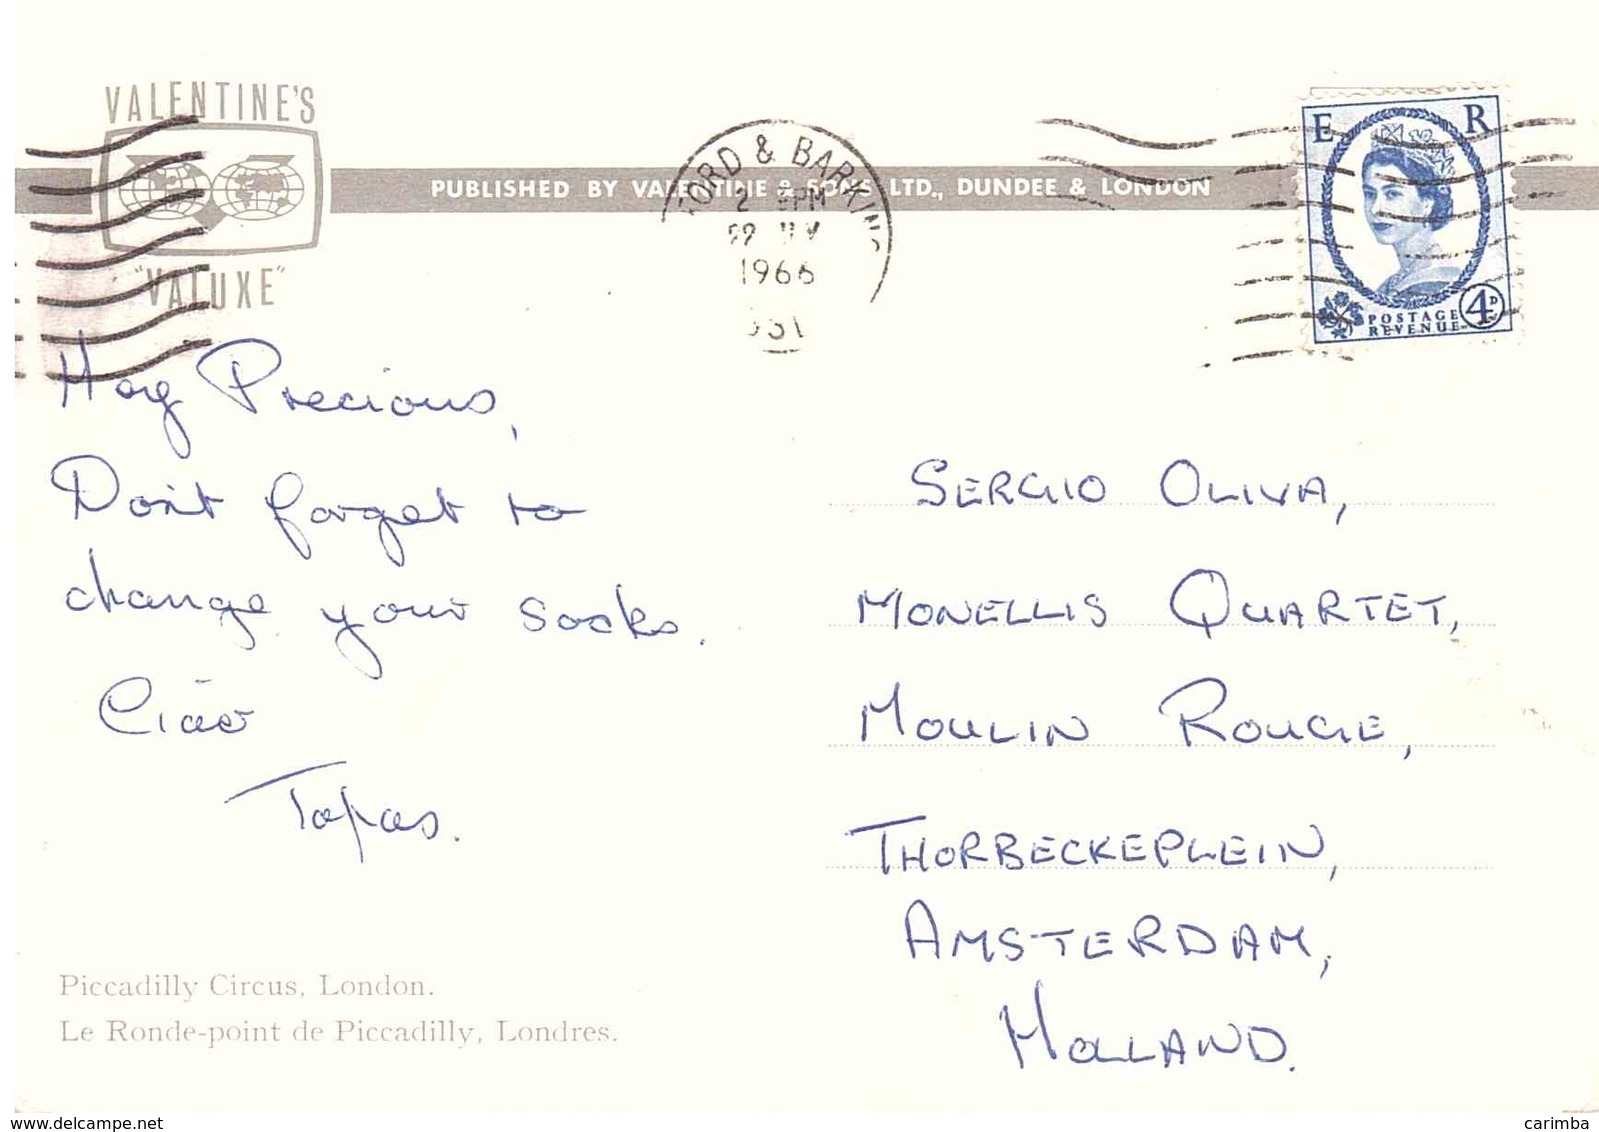 VALENTINE'S
"VALUXE"
PUBLISHED BY VALENTINE & SONS LTD., DUNDEE & LONDON
FORD & BARKING
2 PM
1966
E R
POSTAGE
REVENUE
4D
Hey Precious,
Don't forget to
change your socks.
Ciao
Tapas.
SERGIO OLIVA,
MONELLIS QUARTET,
MOULIN ROUGE,
THORBECKEPLEIN,
AMSTERDAM,
HOLLAND.
Piccadilly Circus, London.
Le Ronde-point de Piccadilly, Londres.
delcampe.net
carimba